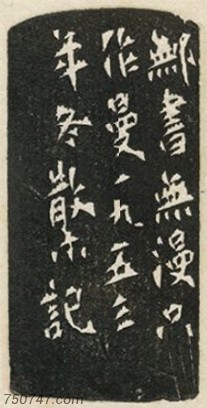 鄦書無漫只
作曼一九五三
年冬散木記
750747.com